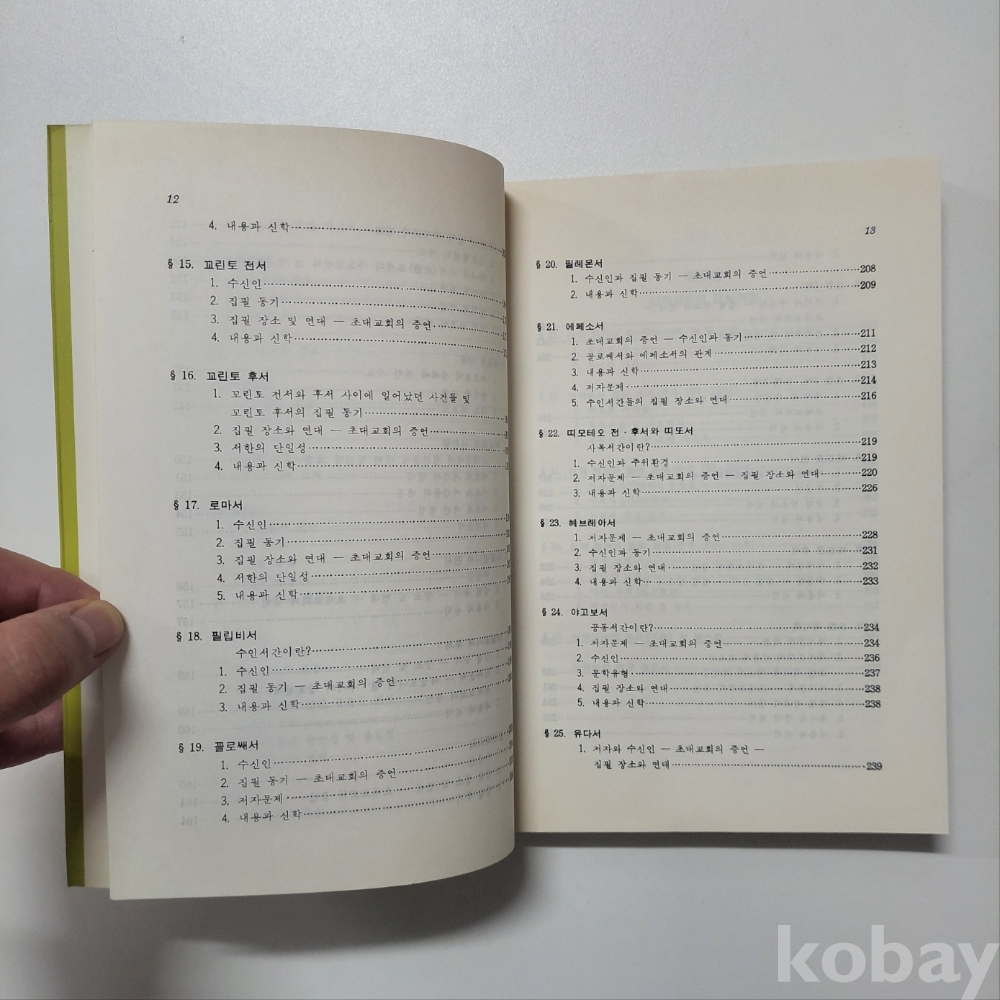 12
4. 내용과 신학
§ 15. 꼬린토 전서
1. 수신인
2. 집필 동기
3. 집필 장소 및 연대 — 초대교회의 증언
4. 내용과 신학
§ 16. 꼬린토 후서
1. 꼬린토 전서와 후서 사이에 일어났던 사건들 및
꼬린토 후서의 집필 동기
2. 집필 장소와 연대 — 초대교회의 증언
3. 서한의 단일성
4. 내용과 신학
§ 17. 로마서
1. 수신인
2. 집필 동기
3. 집필 장소와 연대 — 초대교회의 증언
4. 서한의 단일성
5. 내용과 신학
§ 18. 필립비서
수인서간이란?
1. 수신인
2. 집필 동기 — 초대교회의 증언
3. 내용과 신학
§ 19. 꼴로쌔서
1. 수신인
2. 집필 동기 — 초대교회의 증언
3. 저자문제
4. 내용과 신학
13
§ 20. 필레몬서
1. 수신인과 집필 동기 — 초대교회의 증언 208
2. 내용과 신학 209
§ 21. 에페소서
1. 초대교회의 증언 — 수신인과 동기 211
2. 꼴로쌔서와 에페소서의 관계 212
3. 내용과 신학 213
4. 저자문제 214
5. 수인서간들의 집필 장소와 연대 216
§ 22. 띠모테오 전 · 후서와 띠또서
사목서간이란? 219
1. 수신인과 주위환경 219
2. 저자문제 — 초대교회의 증언 — 집필 장소와 연대 220
3. 내용과 신학 226
§ 23. 헤브레아서
1. 저자문제 — 초대교회의 증언 228
2. 수신인과 동기 231
3. 집필 장소와 연대 232
4. 내용과 신학 233
§ 24. 야고보서
공동서간이란? 234
1. 저자문제 — 초대교회의 증언 234
2. 수신인 236
3. 문학유형 237
4. 집필 장소와 연대 238
5. 내용과 신학 238
§ 25. 유다서
1. 저자와 수신인 — 초대교회의 증언 —
집필 장소와 연대 239
kobay